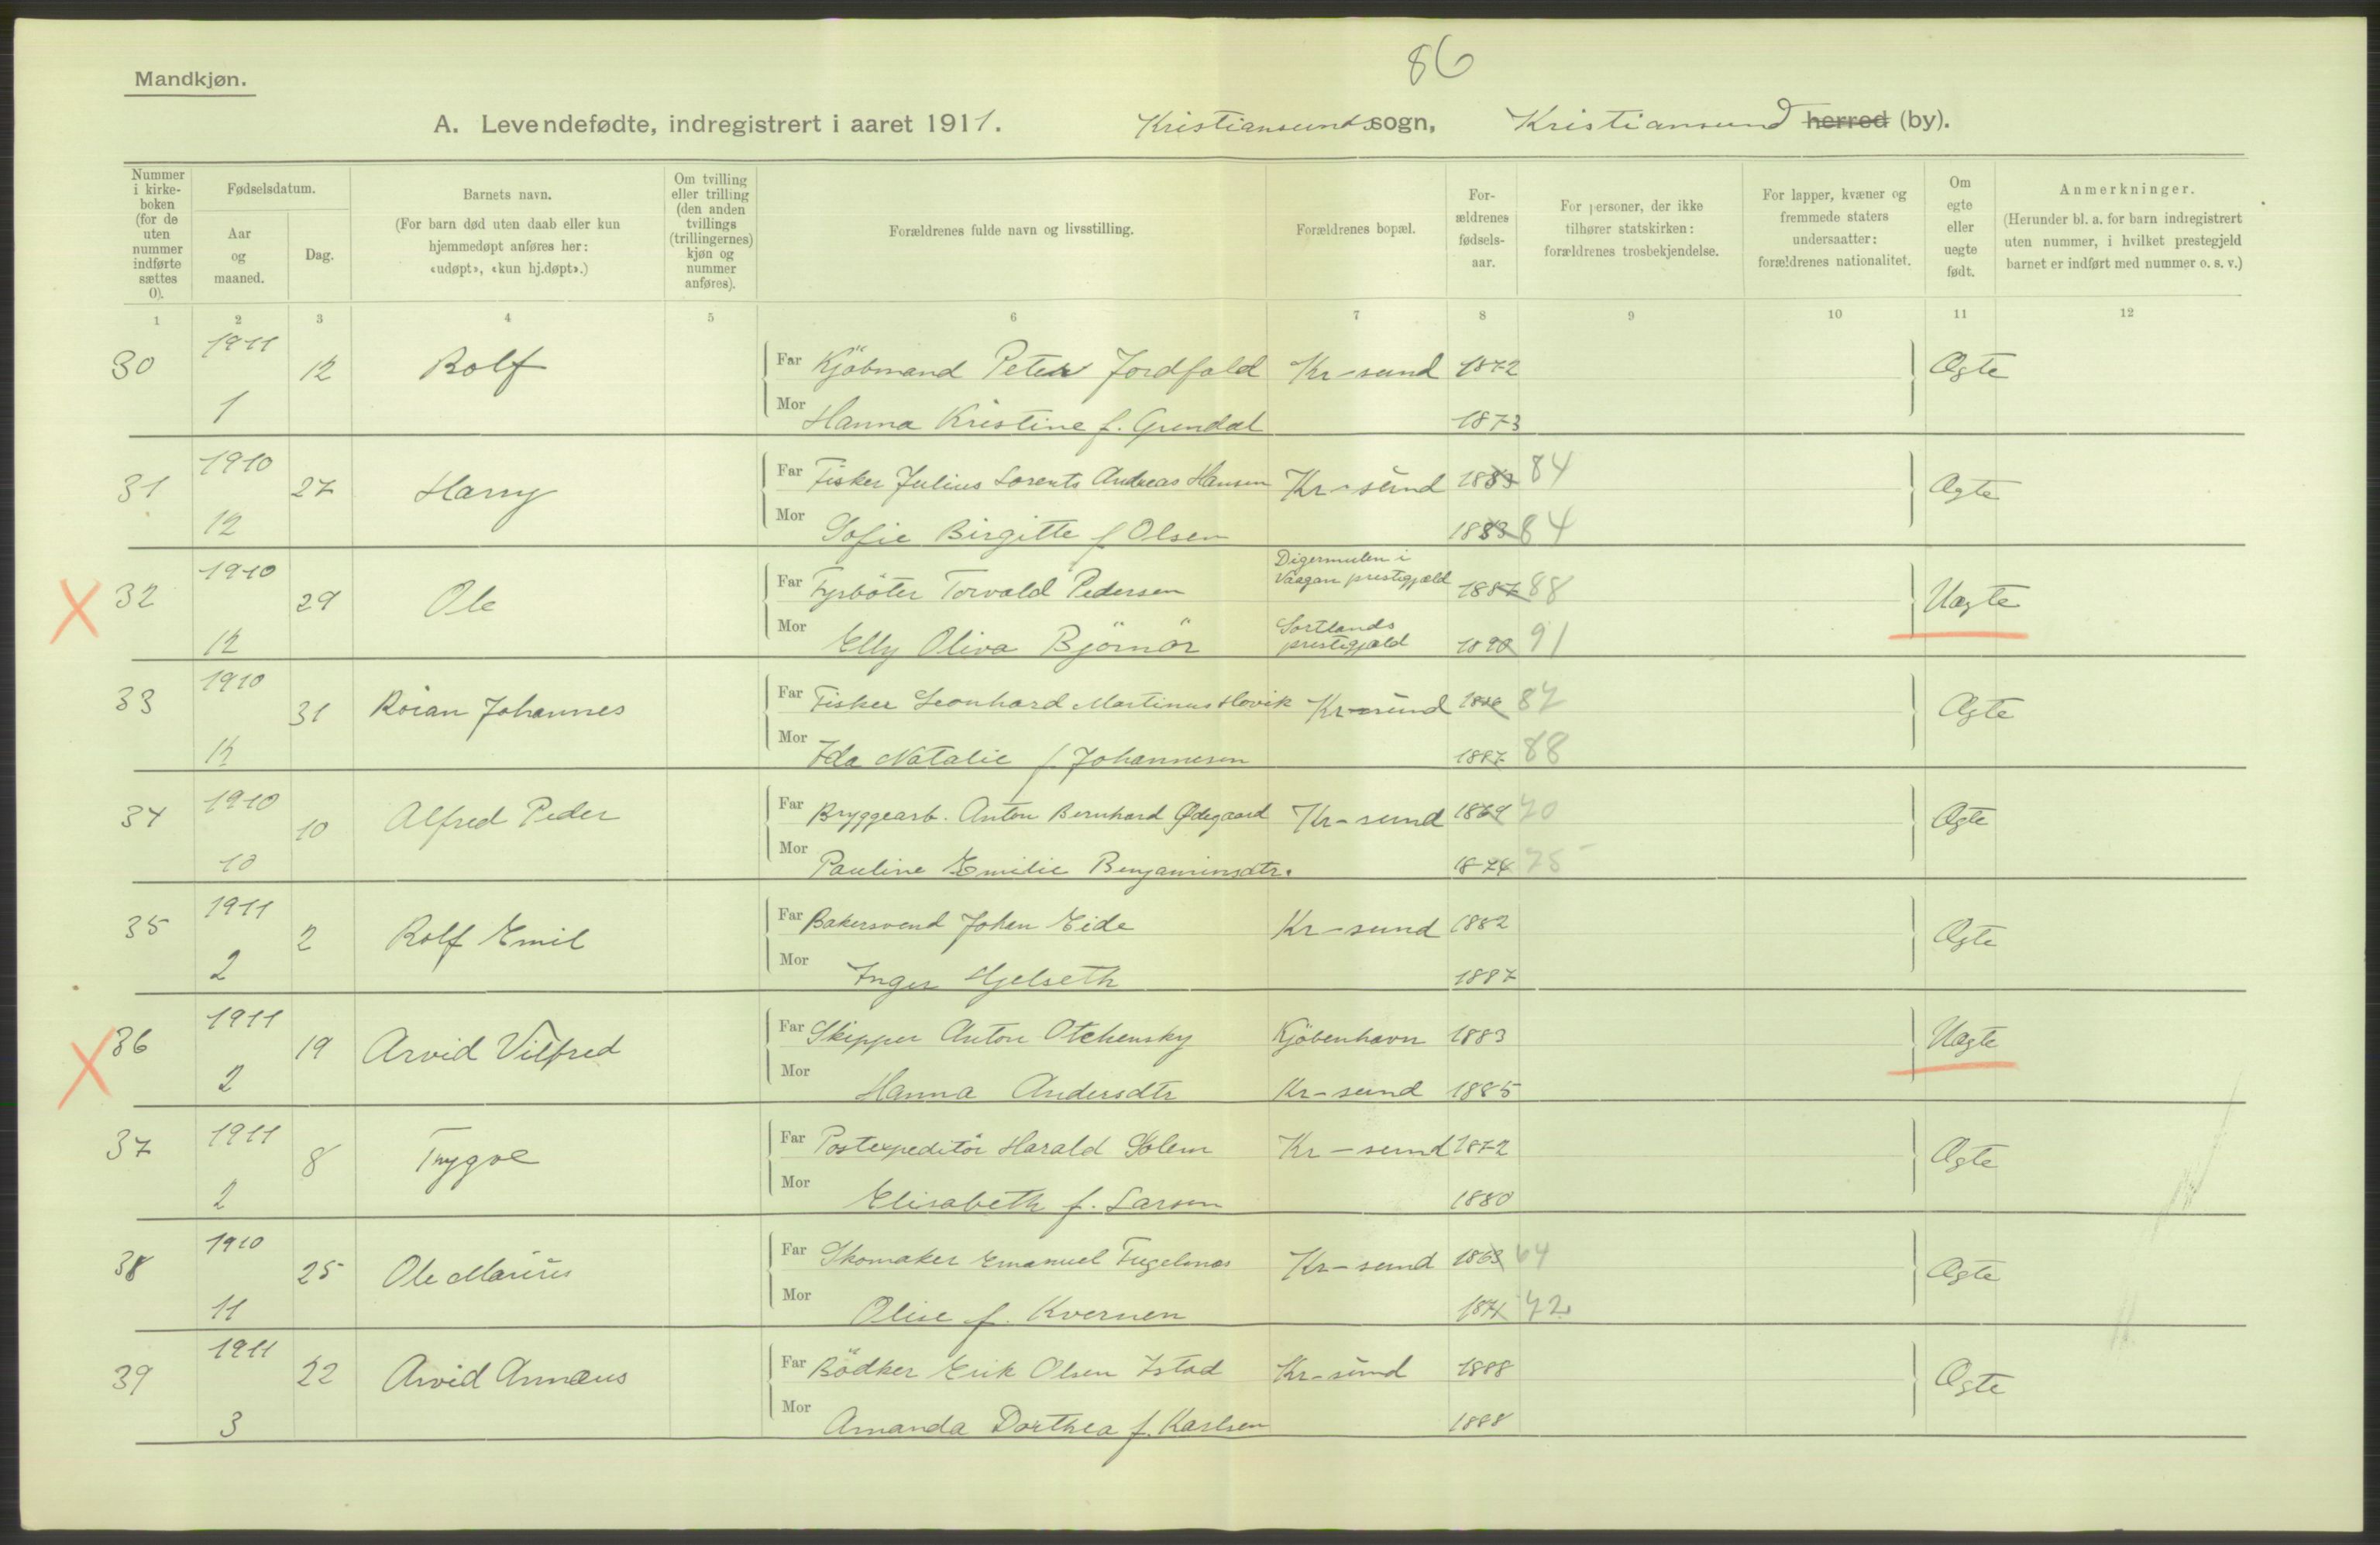 86
Mandkjøn.
A. Levendefødte, indregistrert i aaret 1911. Kristiansunds sogn, Kristiansund herred (by).
Nummer i kirke-boken (for de uten nummer indførte sættes 0).
Fødselsdatum.
Aar og maaned.
Dag.
Barnets navn.
(For barn død uten daab eller kun hjemmedøpt anføres her: «udøpt», «kun hj.døpt».)
Om tvilling eller trilling (den anden tvillings (trillingernes) kjøn og nummer anføres).
Forældrenes fulde navn og livsstilling.
Forældrenes bopæl.
For-ældrenes fødsels-aar.
For personer, der ikke tilhører statskirken: forældrenes trosbekjendelse.
For lapper, kvæner og fremmede staters undersaatter: forældrenes nationalitet.
Om egte eller uegte født.
Anmerkninger.
(Herunder bl. a. for barn indregistrert uten nummer, i hvilket prestegjeld barnet er indført med nummer o. s. v.)
1 2 3 4 5 6 7 8 9 10 11 12
30 1911 12 Rolf Far Kjöbmand Peter Jordfald Kr-sund 1872 Ægte
1 Mor Hanna Kristine f. Grendal 1873
31 1910 27 Harry Far Fisker Julius Lorents Andreas Hansen Kr-sund 1883 84 Ægte
12 Mor Sofie Birgitte f Olsen 1883 84
32 1910 29 Ole Far Fyrböter Torvald Pedersen Digermulen i Vaagan prestegjæld 1887 88 Uægte
12 Mor Elly Oliva Björnör Sortlands prestegjæld 1890 91
33 1910 31 Roian Johannes Far Fisker Leonhard Martinus Hovik Kr-sund 1886 87 Ægte
12 Mor Ida Natalie f Johannesen 1887 88
34 1910 10 Alfred Peder Far Bryggearb. Anton Bernhard Ødegaard Kr-sund 1869 70 Ægte
10 Mor Pauline Emilie Benjaminsdtr. 1874 75
35 1911 2 Rolf Emil Far Bakersvend Johan Eide Kr-sund 1882 Ægte
2 Mor Inger Hjelseth 1887
36 1911 19 Arvid Vilfred Far Skipper Anton Otchensky Kjöbenhavn 1883 Uægte
2 Mor Hanna Andersdtr Kr-sund 1885
37 1911 8 Trygve Far Postexpeditör Harald Solem Kr-sund 1872 Ægte
2 Mor Elisabeth f. Larsen 1880
38 1910 25 Ole Marius Far Skomaker Emanuel Fugelnæs Kr-sund 1863 64 Ægte
11 Mor Olise f. Kvernen 1871 72
39 1911 22 Arvid Annæus Far Bödker Erik Olsen Istad Kr-sund 1888 Ægte
3 Mor Amanda Dorthea f. Karlsen 1888